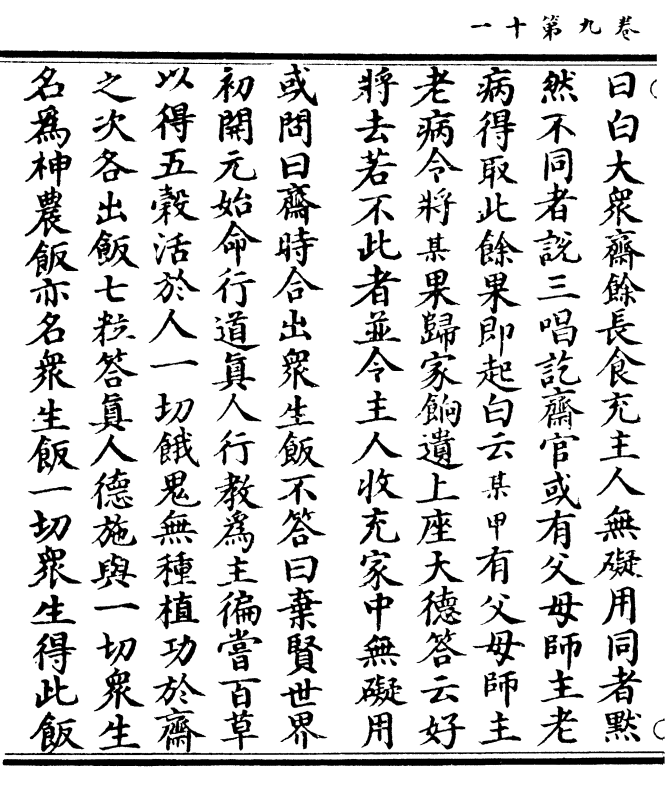 卷九第十一
曰白大衆齋餘長食充主人無礙用同者默
然不同者說三唱訖齋官或有父母師主老
病得取此餘果即起白云某甲有父母師主
老病令將某果歸家餉遺上座大德答云好
將去若不此者並令主人收充家中無礙用
或問曰齋時合出衆生飯不答曰棄賢世界
初開元始命行道眞人行教爲主徧嘗百草
以得五穀活於人一切餓鬼無種植功於齋
之次各出飯七粒答眞人德施與一切衆生
名爲神農飯亦名衆生飯一切衆生得此飯